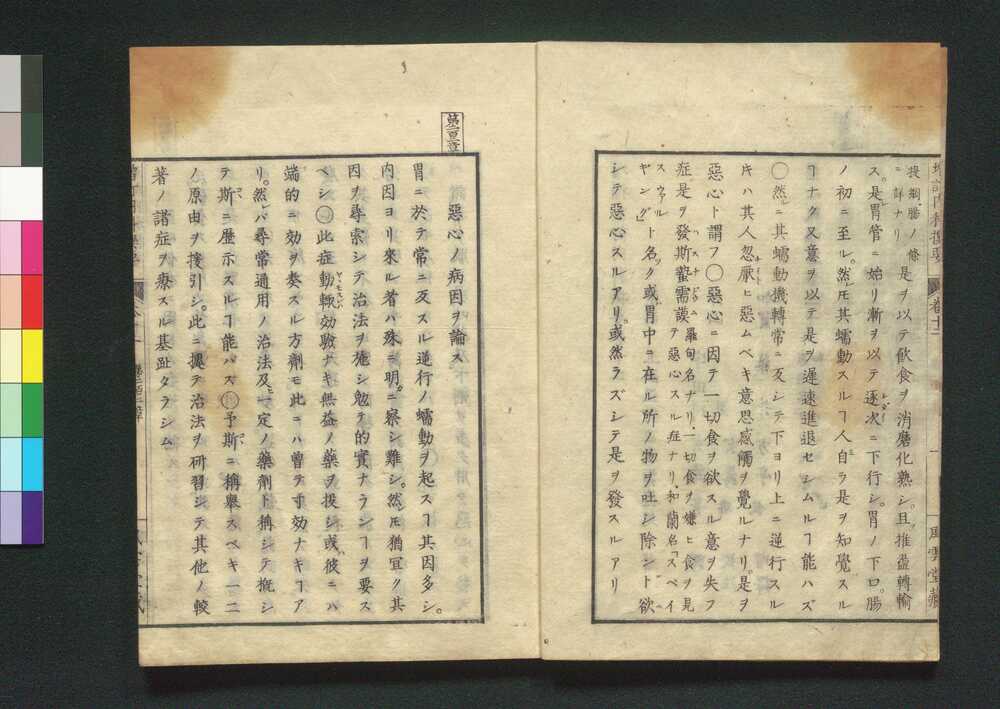 増訂内科撰要 卷十二 一 風雲堂藏
提綱腸ノ條ニ詳ナリ 是ヲ以テ飲食ヲ消磨化熟シ。且推盪轉輸
ス。是レ胃管ニ始リ漸ヲ以テ逐次ニ下行シ。胃ノ下口。腸
ノ初ニ至ル。然レ𪜈其蠕動スルヿ人自ラ是ヲ知覺スル
ヿナク又意ヲ以テ是ヲ遲速進退セシムルヿ能ハズ
〇然ルニ其蠕動機轉常ニ反シテ下ヨリ上ニ逆行スル
𪜈ハ其人忽厭ヒ惡ムベキ意思感觸ヲ覺ルナリ。是ヲ
惡心ト謂フ〇惡心ニ因テ一切食ヲ欲スル意ヲ失フ
症是ヲ發斯蟄需謨 羅甸名ナリ、一切食ヲ嫌ヒ食ヲ見テ惡心スル症ナリ、和蘭名コスペイ
スワルヤンゲト名ク 或胃中ニ在ル所ノ物ヲ吐シ除ント欲
シテ惡心スルアリ。或然ラズシテ是ヲ發スルアリ
第二百二章
惡心ノ病因ヲ論ス
胃ニ於テ常ニ反スル逆行ノ蠕動ヲ起スヿ其因多シ。
内因ヨリ來ル者ハ殊ニ明カニ察シ難シ。然レ𪜈猶宜ク其
因ヲ尋索シテ治法ヲ施シ勉テ的實ナランヿヲ要ス
ベシ〇此症動輙効驗ナキ無益ノ藥ヲ投シ或ハ彼ニハ
端的ニ効ヲ奏スル方劑モ此ニハ曾テ寸効ナキヿア
リ。然レバ尋常通用ノ治法及ヒ一定ノ藥劑ト稱シテ槪シ
テ斯ニ歴示スルヿ能ハズ〇予斯ニ稱擧スベキ一二
ノ原由ヲ援引シ。此ニ據テ治法ヲ研習シテ其他ノ較
著ノ諸症ヲ療スル基趾タラシム
第二百二章